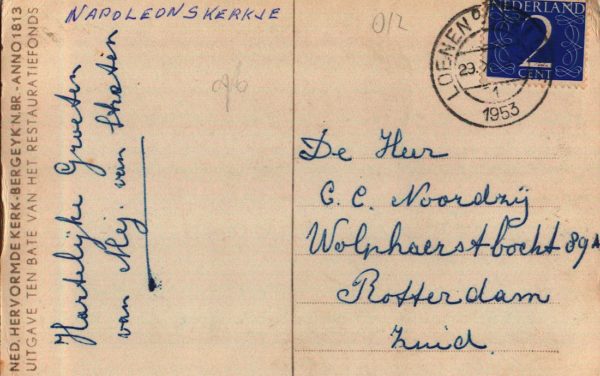 NAPOLEONSKERKJE
NED. HERVORMDE KERK-BERGEYK N.BR.-ANNO 1813
UITGAVE TEN BATE VAN HET RESTAURATIEFONDS
Hartelijke Groeten
van Mej. van
0/2
76
LOENEN
29
1
1953
NEDERLAND
2
CENT
De Heer
C. C. Noordzij
Wolphaerstbocht 89A
Rotterdam
Zuid.